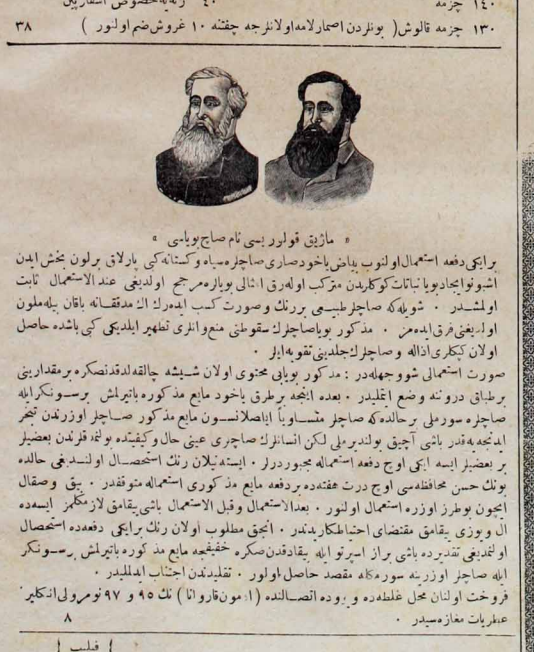 ١٤٠ چزمه
١٣٠ چزمه قالوش ( بونلردن اصمارلامه اولانلرجه چفتنه ١٠ غروش ضم اولنور ) ٣٨
« ماژيق قولور بسی نام صاچ بوياسی »
بر ايكی دفعه استعمال اولنوب بياض ياخود صاری صاچلره سياه و كستانه كبی پارلاق بر لون بخش ايدن
اشبو نو ايجاد بويا نباتات كوكلردن مركب اوله‌رق امثالی بويالره مرجح اولديغی عند الاستعمال ثابت
اولمشدر . شويله‌كه صاچلر طبيعی بر رنك و صورت كسب ايده‌رك اك مدققانه باقان بيله ملون
اولديغنی فرق ايده‌مز . مذكور بويا صاچلرك سقوطنی منع و انلری تطهير ايلديكی كبی باشده حاصل
اولان كپكلری ازاله و صاچلرك جلدينی تقويه ايلر .
صورت استعمالی شو وجهله‌در : مذكور بويايی محتوی اولان شيشه چالقه‌لدقدنصكره بر مقدارينی
بر طباق دروننه وضع ايتمليدر . بعده اينجه بر طرق ياخود مايع مذكوره باتيرلمش بر سونكر ايله
صاچلره سورملی بر حالده‌كه صاچلر متساوياً اصلانسون مايع مذكور صاچلر اوزرندن تبخر
ايدنجه‌يه‌قدر باشی آچيق بولنديرملی لكن انسانلرك صاچلری عينی حال و كيفيتده بولنمدقلرندن بعضيلر
بر بعضيلر ايسه ايكی اوچ دفعه استعماله مجبوردرلر . ايستنيلان رنك استحصال اولنديغی حالده
بونك حسن محافظه‌سی اوچ درت هفته‌ده بر دفعه مايع مذكوری استعماله متوقفدر . بيق و صقال
ايچون بو طرز اوزره استعمال اولنور . بعد الاستعمال و قبل الاستعمال باشی يقامق لازمكلمز ايسه‌ده
ال و يوزی يقامق مقتضای احتياطكاريدندر . انجق مطلوب اولان رنك بر ايكی دفعه‌ده استحصال
اولنمديغی تقديرده باشی براز اسپرتو ايله يقادقدن صكره خفيفجه مايع مذكوره باتيرلمش بر سونكر
ايله صاچلر اوزرينه سورمكله مقصد حاصل اولور . تقليدندن اجتناب ايدلمليدر .
فروخت اولنان محل غلطه‌ده و يوده اتصالنده ( نك ٩٥ و ٩٧ نومرولی انكليز
عطريات مغازه‌سيدر . ٨